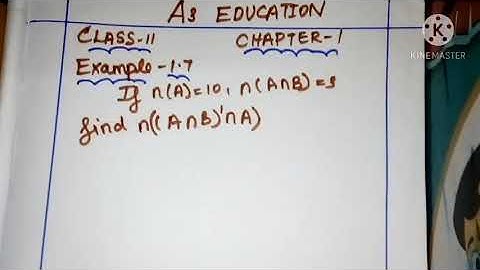 A3 EDUCATION
CLASS-11 CHAPTER-1
Example-1.7
If n(A)=10, n(A∩B)=3
find n((A∩B)'∩A)
KINEMASTER